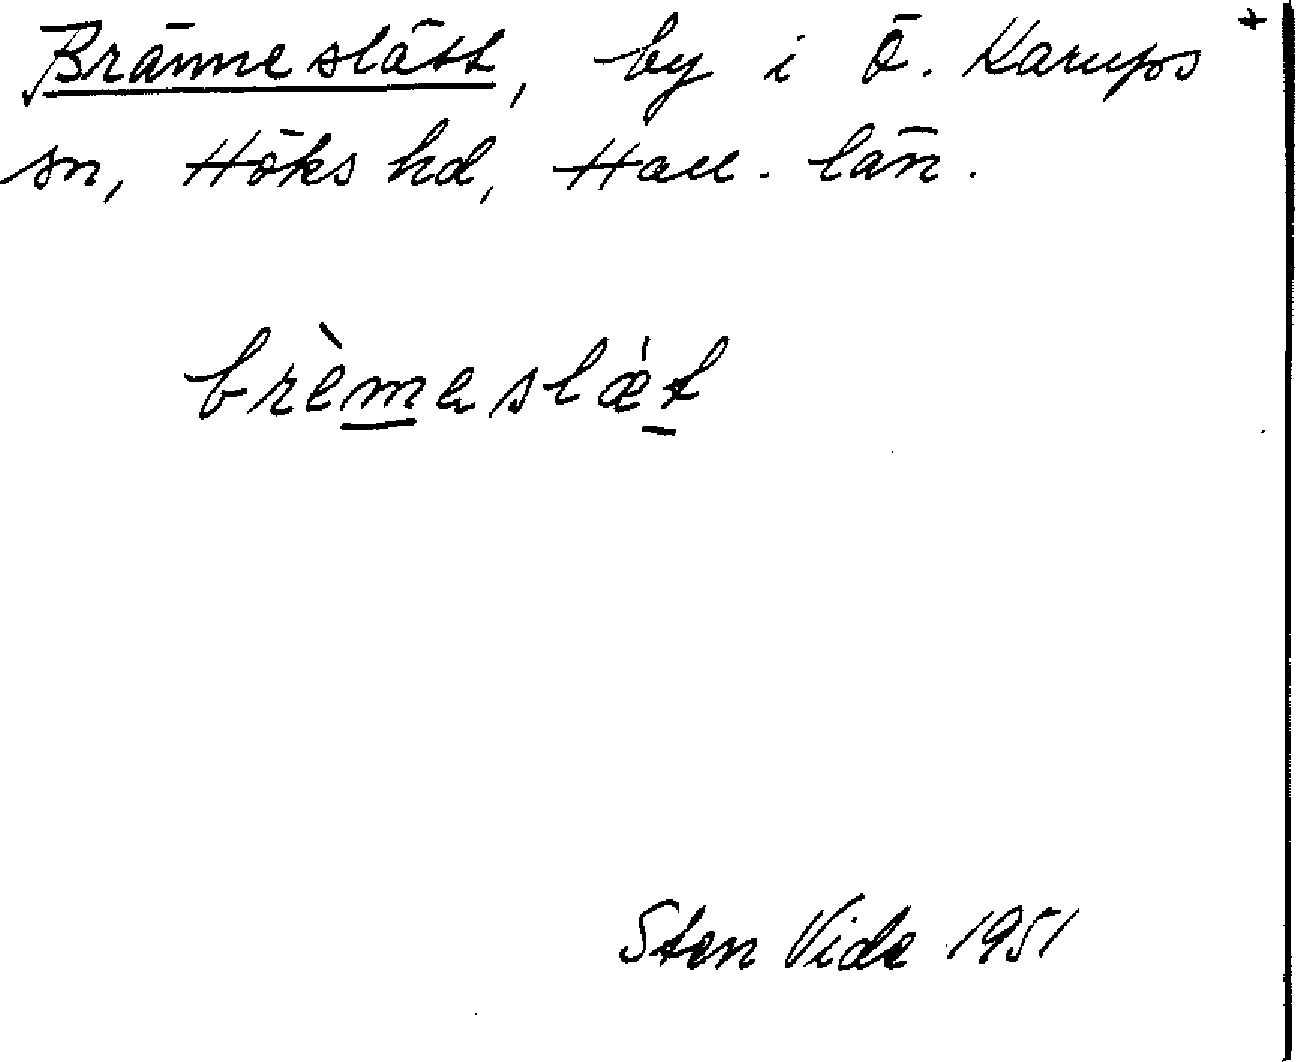 Bränneslätt, by i Ö. Karups +
sn, Höks hd, Hall. län.
brèmeslæ̀t
Sten Vide 1951